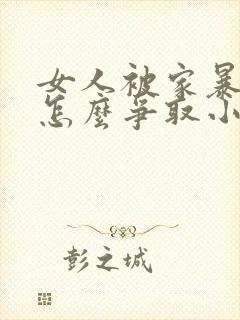 女人被家暴
怎麼爭取小
彭之城